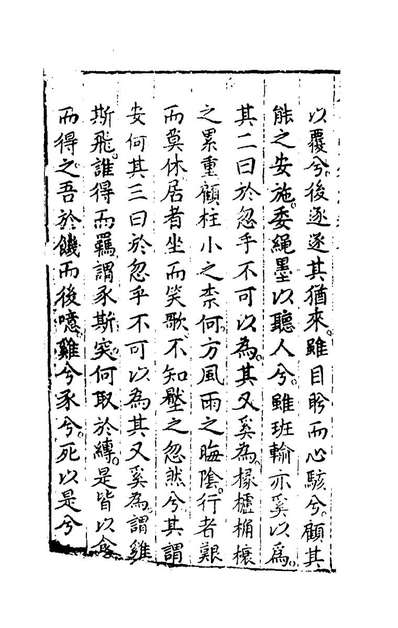 以覆兮。後逐遂其猶來。雖目盻而心駭兮。顧其
能之安施。委繩墨以聽人兮。雖班輸亦奚以爲。
其二曰於忽乎不可以為。其又奚為。椽櫨桷榱
之累重顧柱小之柰何。方風雨之晦陰。行者艱
而莫休居者坐而笑歌。不知壓之忽然兮其謂
安何其三曰於忽乎不可以為其又奚為。謂雞
斯飛。誰得而羈。謂豕斯突。何取於縳。是皆以食
而得之。吾於饑而後噫。雞兮豕兮。死以是兮